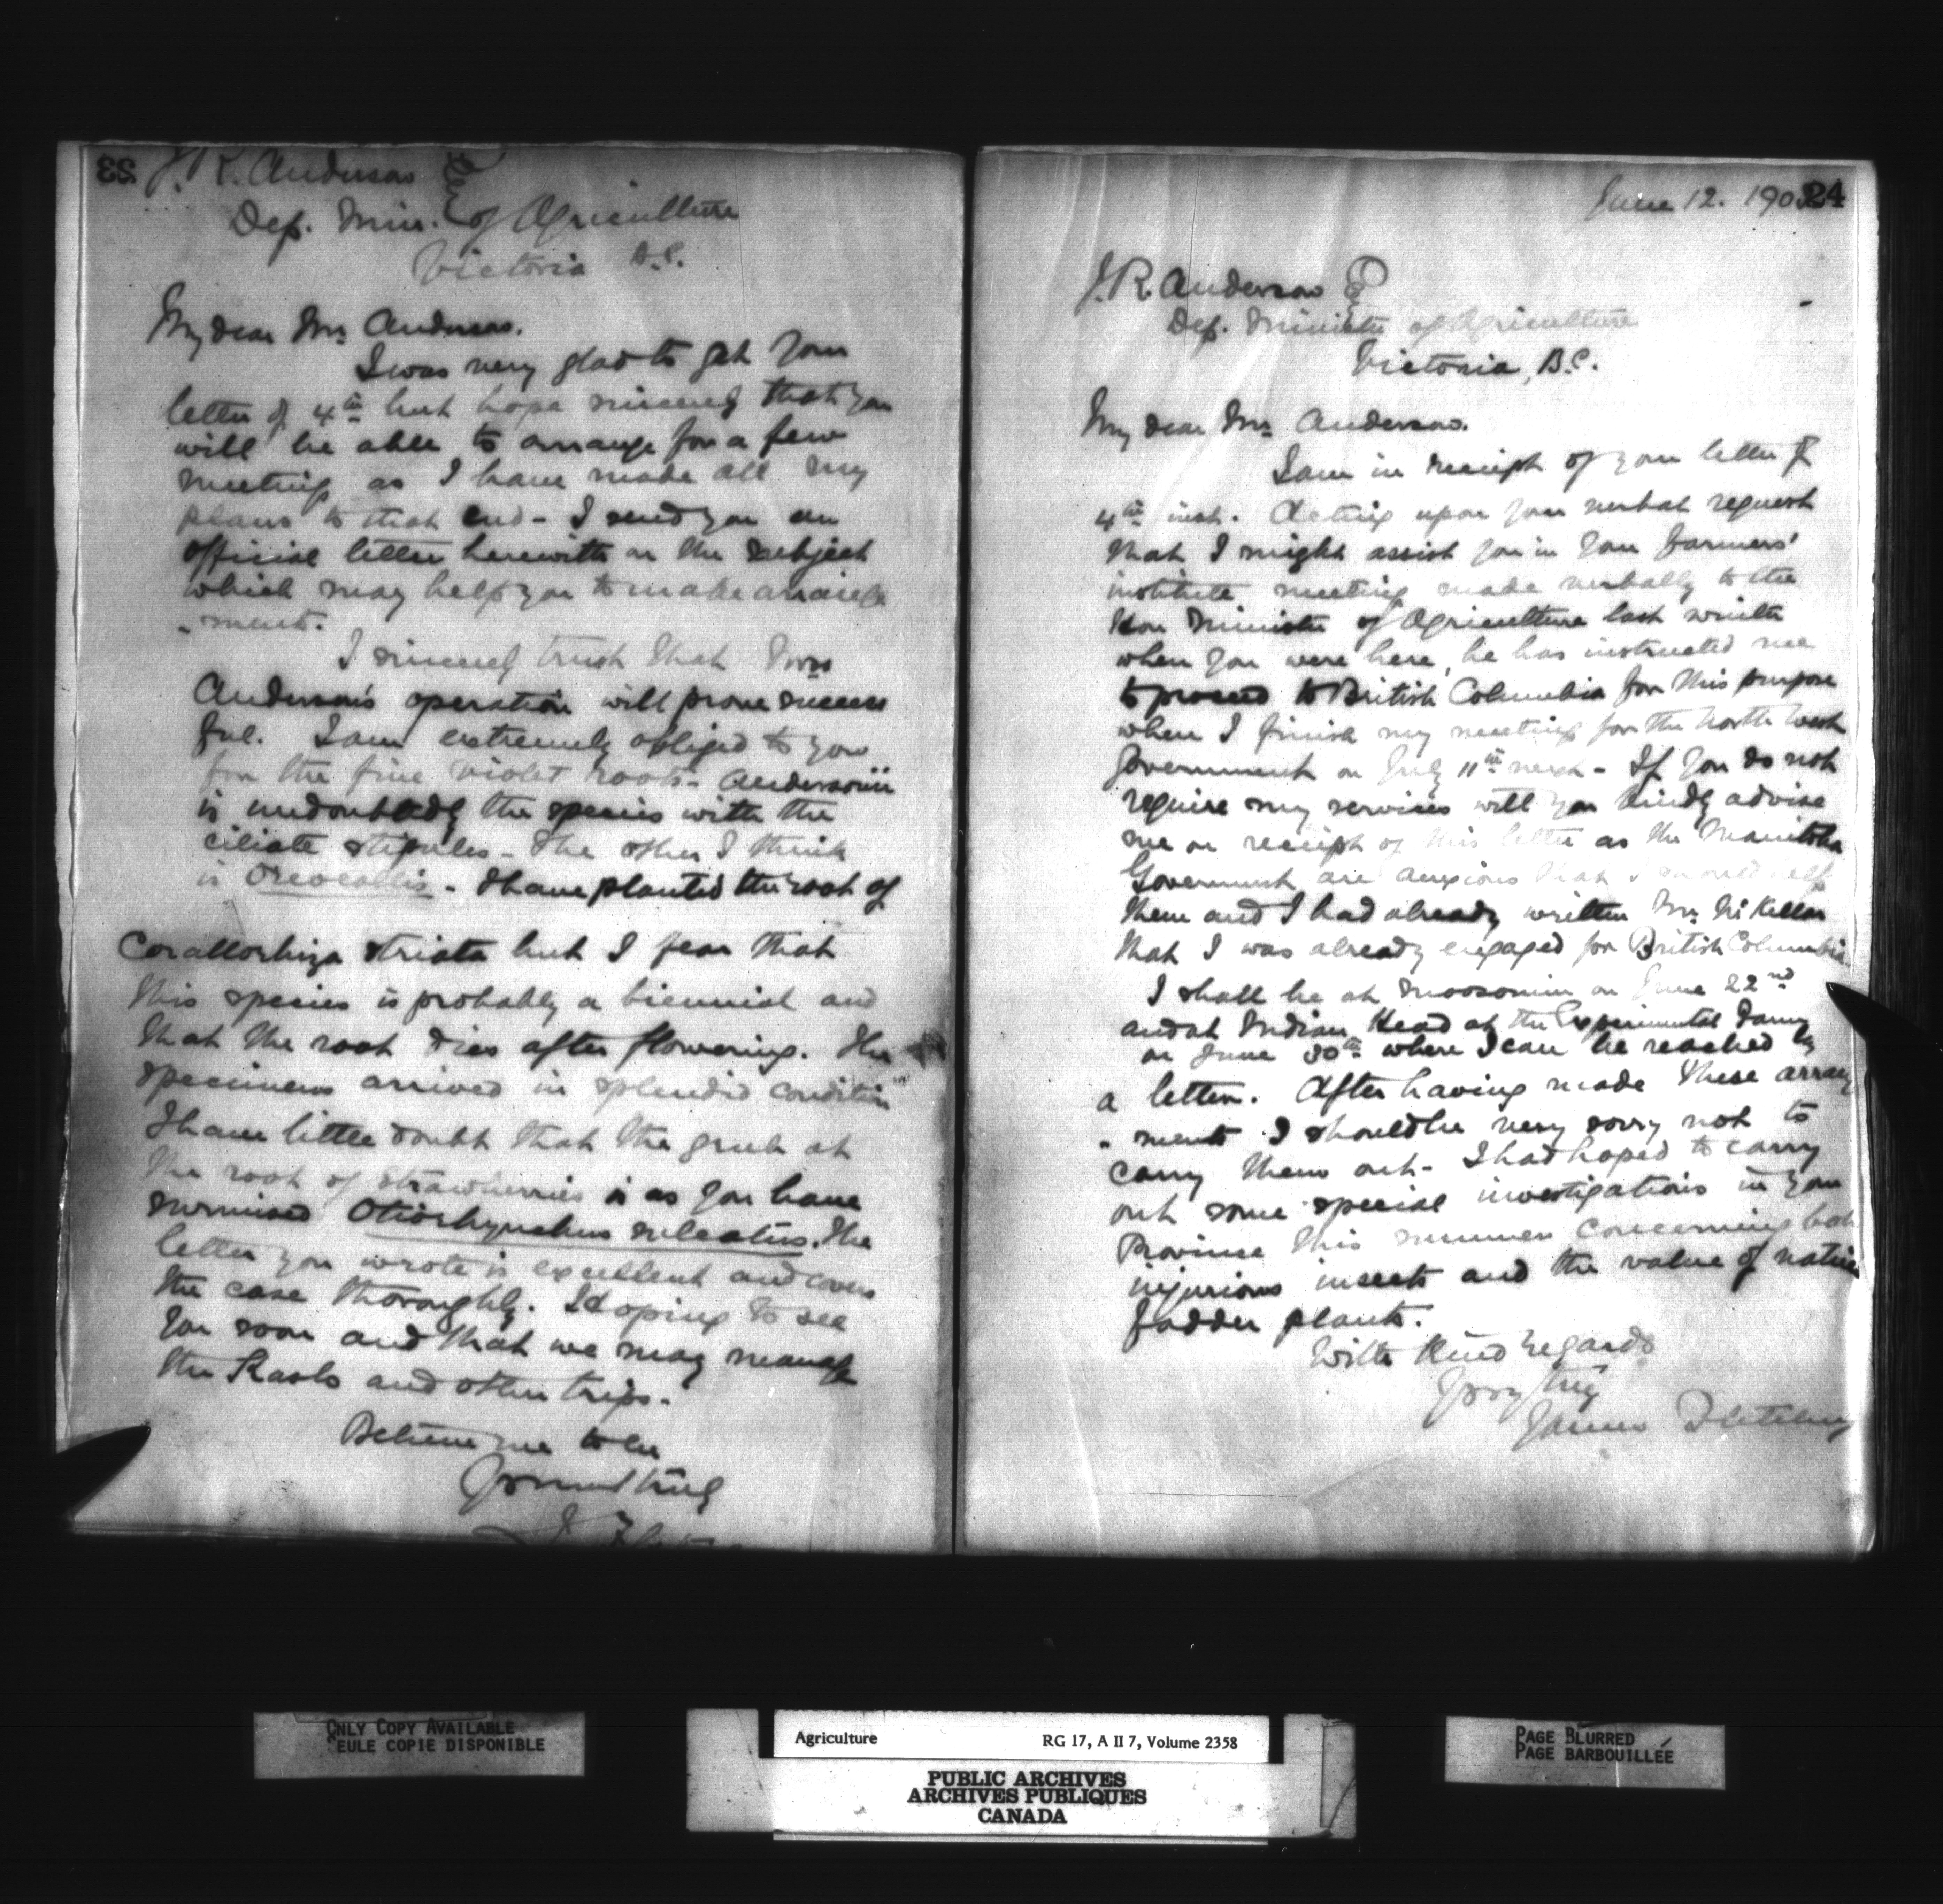 23
J. R. Anderson Esq
Dep. Min. of Agriculture
Victoria B.C.
My dear Mr. Anderson.
I was very glad to get your
letter of 4th but hope sincerely that you
will be able to arrange for a few
meetings as I have made all my
plans to that end - I send you an
official letter herewith on the subject
which may help you to make arrange
-ments.
I sincerely trust that Mrs
Anderson's operation will prove success
ful. I am extremely obliged to you
for the fine violet roots - Andersonii
is undoubtedly the species with the
ciliate stipules - The other I think
is - I have planted the root of
Corallorhiza striata but I fear that
this species is probably a biennial and
that the root dies after flowering. The
specimens arrived in splendid condition
I have little doubt that the grub at
the root of strawberries is as you have
surmised Otiorhynchus sulcatus. The
letter you wrote is excellent and covers
the case thoroughly. Hoping to see
you soon and that we may manage
the Kaslo and other trips.
Believe me to be
Yours very truly
J. Fletcher
24
June 12. 190
J. R. Anderson Esq
Dep. Minister of Agriculture
Victoria, B.C.
My dear Mr. Anderson.
I am in receipt of your letter of
4th inst. Acting upon your verbal request
that I might assist you in your farmers'
institute meetings made verbally to the
Hon Minister of Agriculture last winter
when you were here, he has instructed me
to proceed to British Columbia for this purpose
when I finish my meetings for the North West
Government on July 11th next - If you do not
require my services will you kindly advise
me on receipt of this letter as the Manitoba
Government are anxious that I should help
them and I had already written Mr. McKellar
that I was already engaged for British Columbia.
I shall be at Moosomin on June 22nd
and at Indian Head at the Experimental Farm
on June 30th where I can be reached by
a letter. After having made these arrange
-ments I should be very sorry not to
carry them out - I had hoped to carry
out some special investigations in your
Province this summer concerning both
injurious insects and the value of native
fodder plants.
With kind regards
Yours very truly
James Fletcher
ONLY COPY AVAILABLE
SEULE COPIE DISPONIBLE
Agriculture RG 17, A II 7, Volume 2358
PUBLIC ARCHIVES
ARCHIVES PUBLIQUES
CANADA
PAGE BLURRED
PAGE BARBOUILLÉE